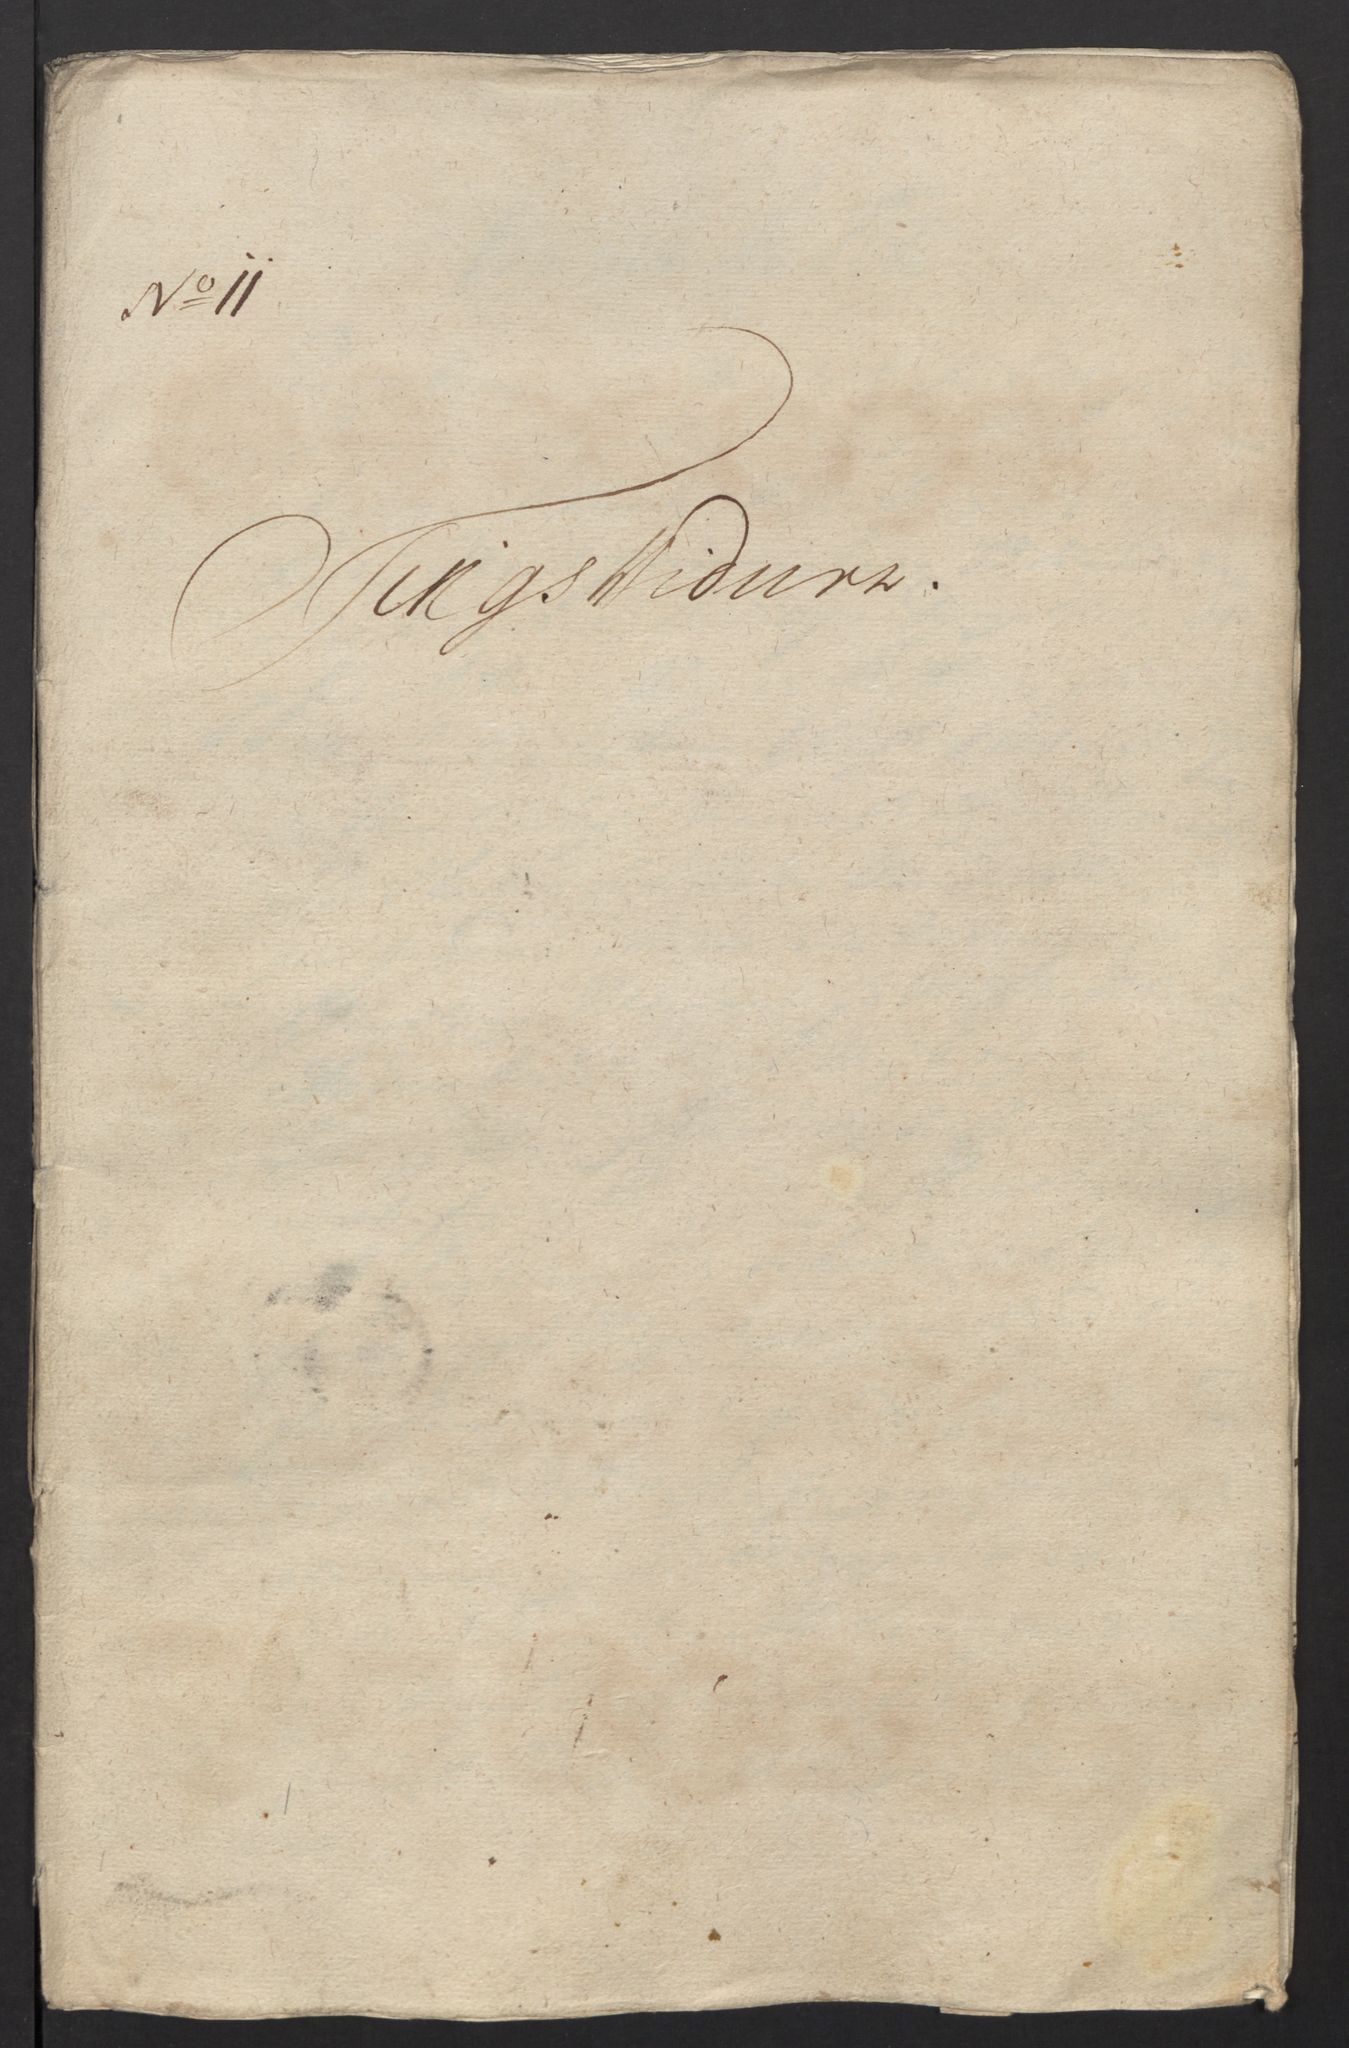 No 11
Tingswidner.